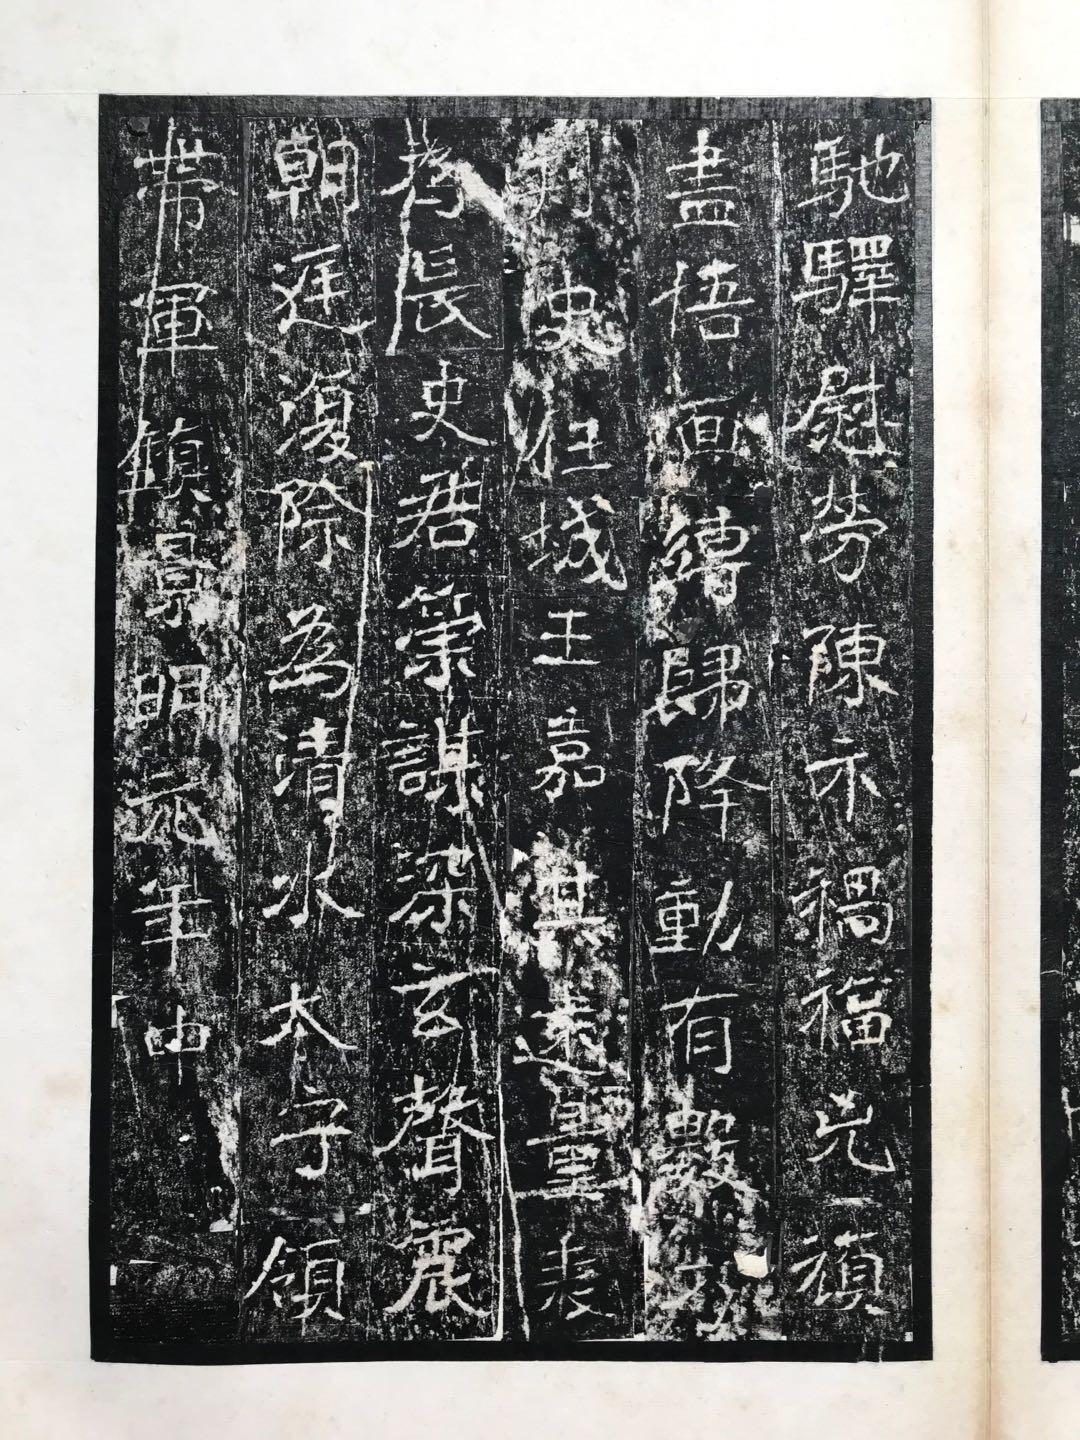 馳驛慰勞陳示禍福兇頑
盡悟面縛歸降動有數
刺史任城王嘉其遠量表
長史君策謀深玄聲震
朝廷復除為清水太守領
帶軍鎮景明元年中